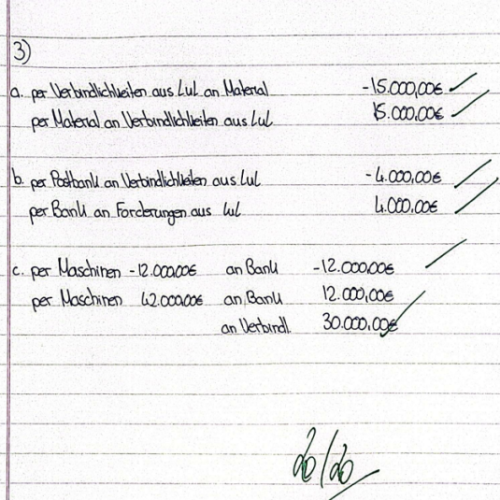 3)
a. per Verbindlichkeiten aus LuL an Material -15.000,00€
per Material an Verbindlichkeiten aus LuL 15.000,00€
b. per Postbank an Verbindlichkeiten aus LuL -4.000,00€
per Bank an Forderungen aus LuL 4.000,00€
c. per Maschinen -12.000,00€ an Bank -12.000,00€
per Maschinen 42.000,00€ an Bank 12.000,00€
an Verbindl. 30.000,00€